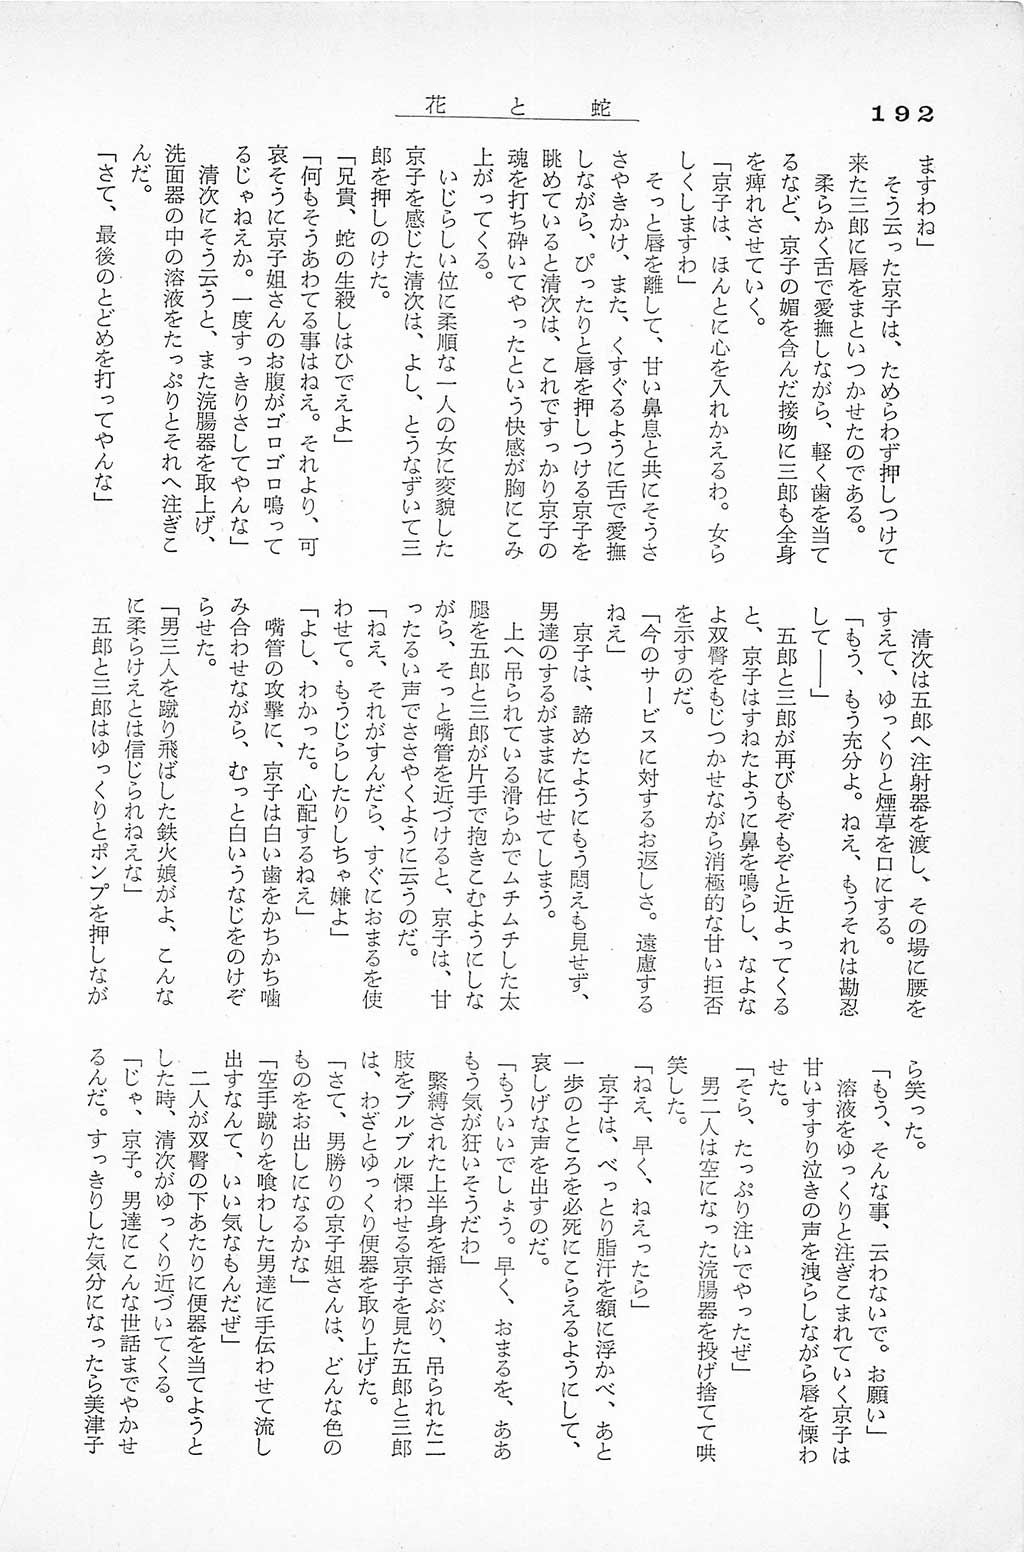 192
花と蛇
ますわね」
　そう云った京子は、ためらわず押しつけて
来た三郎に唇をまといつかせたのである。
　柔らかく舌で愛撫しながら、軽く歯を当て
るなど、京子の媚を含んだ接吻に三郎も全身
を痺れさせていく。
「京子は、ほんとに心を入れかえるわ。女ら
しくしますわ」
　そっと唇を離して、甘い鼻息と共にそうさ
さやきかけ、また、くすぐるように舌で愛撫
しながら、ぴったりと唇を押しつける京子を
眺めていると清次は、これですっかり京子の
魂を打ち砕いてやったという快感が胸にこみ
上がってくる。
　いじらしい位に柔順な一人の女に変貌した
京子を感じた清次は、よし、とうなずいて三
郎を押しのけた。
「兄貴、蛇の生殺しはひでえよ」
「何もそうあわてる事はねえ。それより、可
哀そうに京子姐さんのお腹がゴロゴロ鳴って
るじゃねえか。一度すっきりさしてやんな」
　清次にそう云うと、また浣腸器を取上げ、
洗面器の中の溶液をたっぷりとそれへ注ぎこ
んだ。
「さて、最後のとどめを打ってやんな」
　清次は五郎へ注射器を渡し、その場に腰を
すえて、ゆっくりと煙草を口にする。
「もう、もう充分よ。ねえ、もうそれは勘忍
して――」
　五郎と三郎が再びもぞもぞと近よってくる
と、京子はすねたように鼻を鳴らし、なよな
よ双臀をもじつかせながら消極的な甘い拒否
を示すのだ。
「今のサービスに対するお返しさ。遠慮する
ねえ」
　京子は、諦めたようにもう悶えも見せず、
男達のするがままに任せてしまう。
　上へ吊られている滑らかでムチムチした太
腿を五郎と三郎が片手で抱きこむようにしな
がら、そっと嘴管を近づけると、京子は、甘
ったるい声でささやくように云うのだ。
「ねえ、それがすんだら、すぐにおまるを使
わせて。もうじらしたりしちゃ嫌よ」
「よし、わかった。心配するねえ」
　嘴管の攻撃に、京子は白い歯をかちかち噛
み合わせながら、むっと白いうなじをのけぞ
らせた。
「男三人を蹴り飛ばした鉄火娘がよ、こんな
に柔らけえとは信じられねえな」
　五郎と三郎はゆっくりとポンプを押しなが
ら笑った。
「もう、そんな事、云わないで。お願い」
　溶液をゆっくりと注ぎこまれていく京子は
甘いすすり泣きの声を洩らしながら唇を慄わ
せた。
「そら、たっぷり注いでやったぜ」
　男二人は空になった浣腸器を投げ捨てて哄
笑した。
「ねえ、早く、ねえったら」
　京子は、べっとり脂汗を額に浮かべ、あと
一歩のところを必死にこらえるようにして、
哀しげな声を出すのだ。
「もういいでしょう。早く、おまるを、ああ
もう気が狂いそうだわ」
　緊縛された上半身を揺さぶり、吊られた二
肢をブルブル慄わせる京子を見た五郎と三郎
は、わざとゆっくり便器を取り上げた。
「さて、男勝りの京子姐さんは、どんな色の
ものをお出しになるかな」
「空手蹴りを喰わした男達に手伝わせて流し
出すなんて、いい気なもんだぜ」
　二人が双臀の下あたりに便器を当てようと
した時、清次がゆっくり近づいてくる。
「じゃ、京子。男達にこんな世話までやかせ
るんだ。すっきりした気分になったら美津子